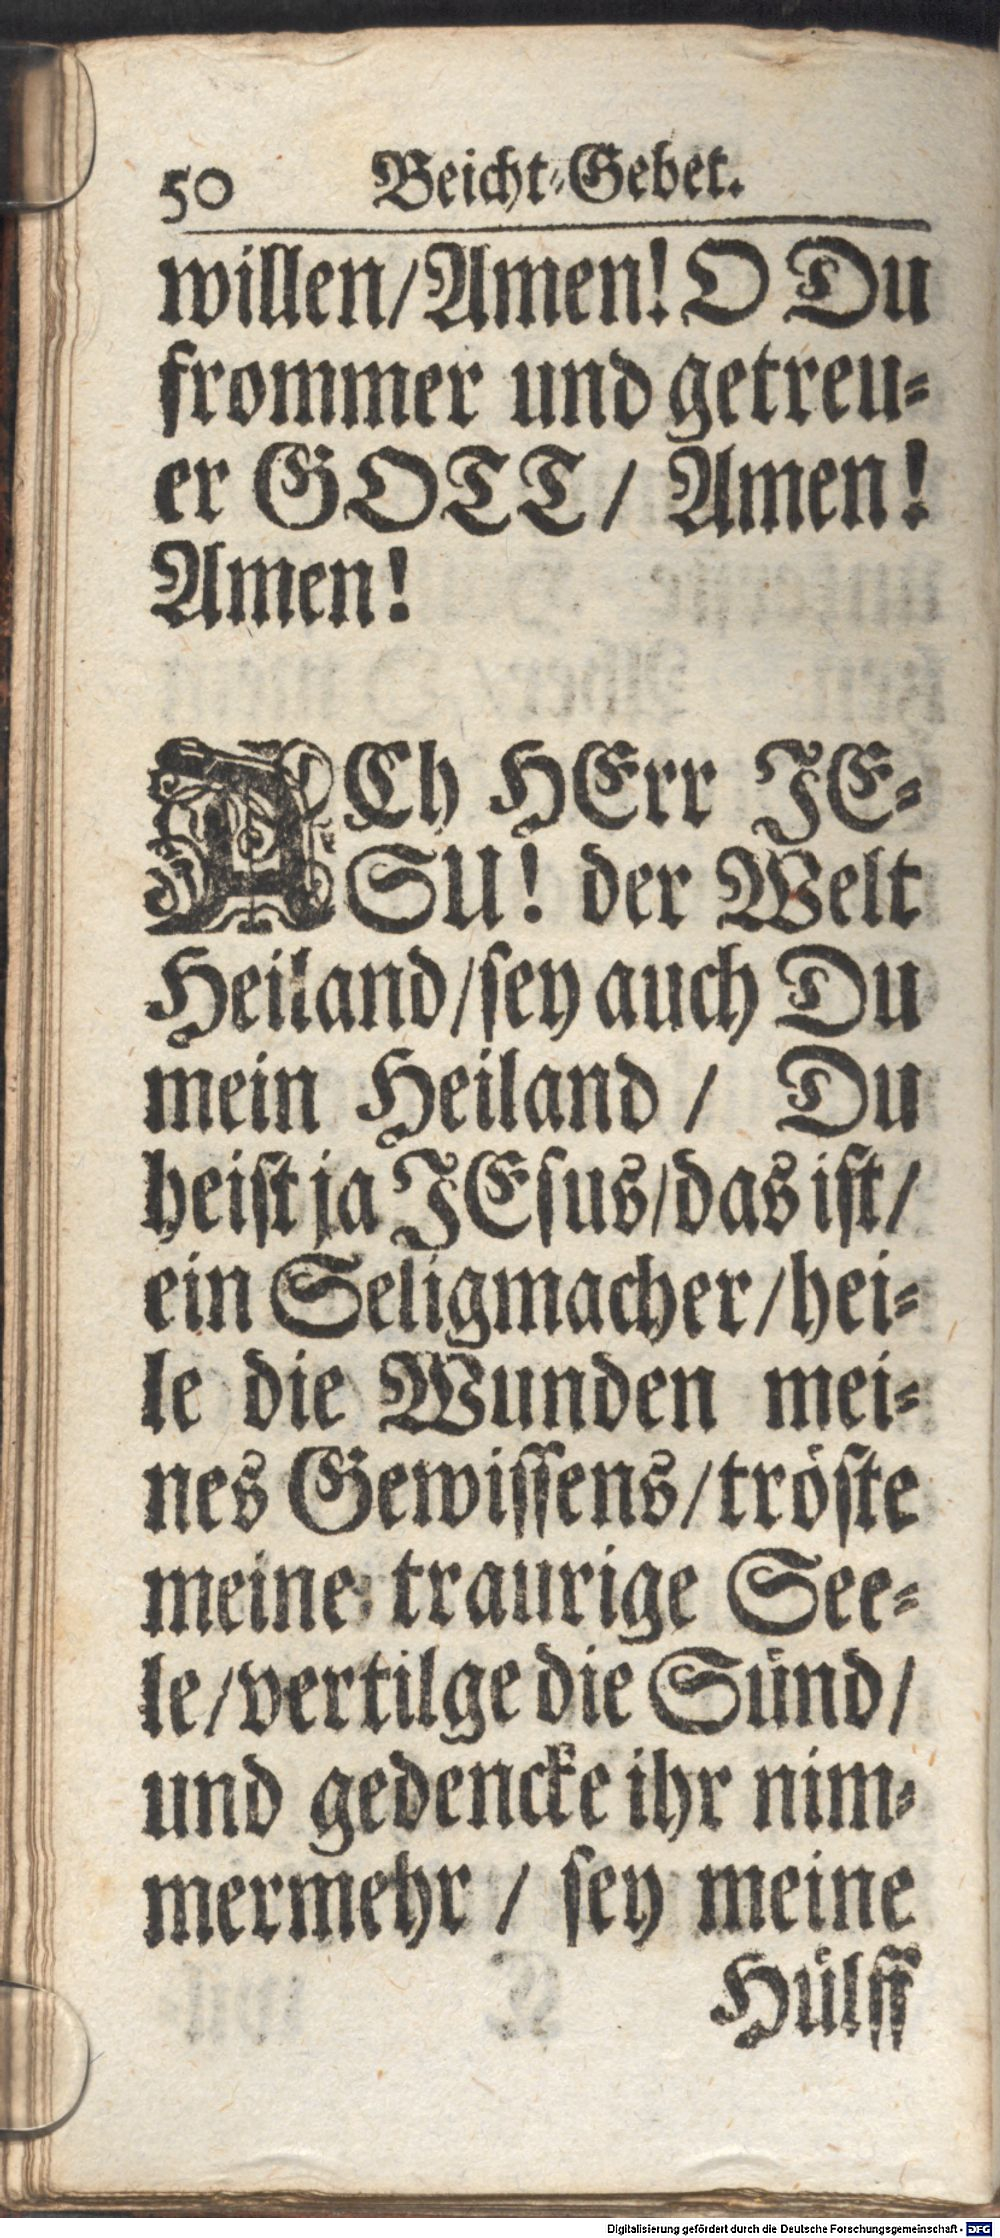 50 Beicht-Gebet.
willen/Amen! O Du
frommer und getreu-
er GOTT/ Amen!
Amen!
ACh HErr JE-
SU! der Welt
Heiland/sey auch Du
mein Heiland / Du
heist ja JEsus/das ist/
ein Seligmacher/hei-
le die Wunden mei-
nes Gewissens/tröste
meine traurige See-
le/vertilge die Sünd/
und gedencke ihr nim-
mermehr / sey meine
Hülff
Digitalisierung gefördert durch die Deutsche Forschungsgemeinschaft - DFG